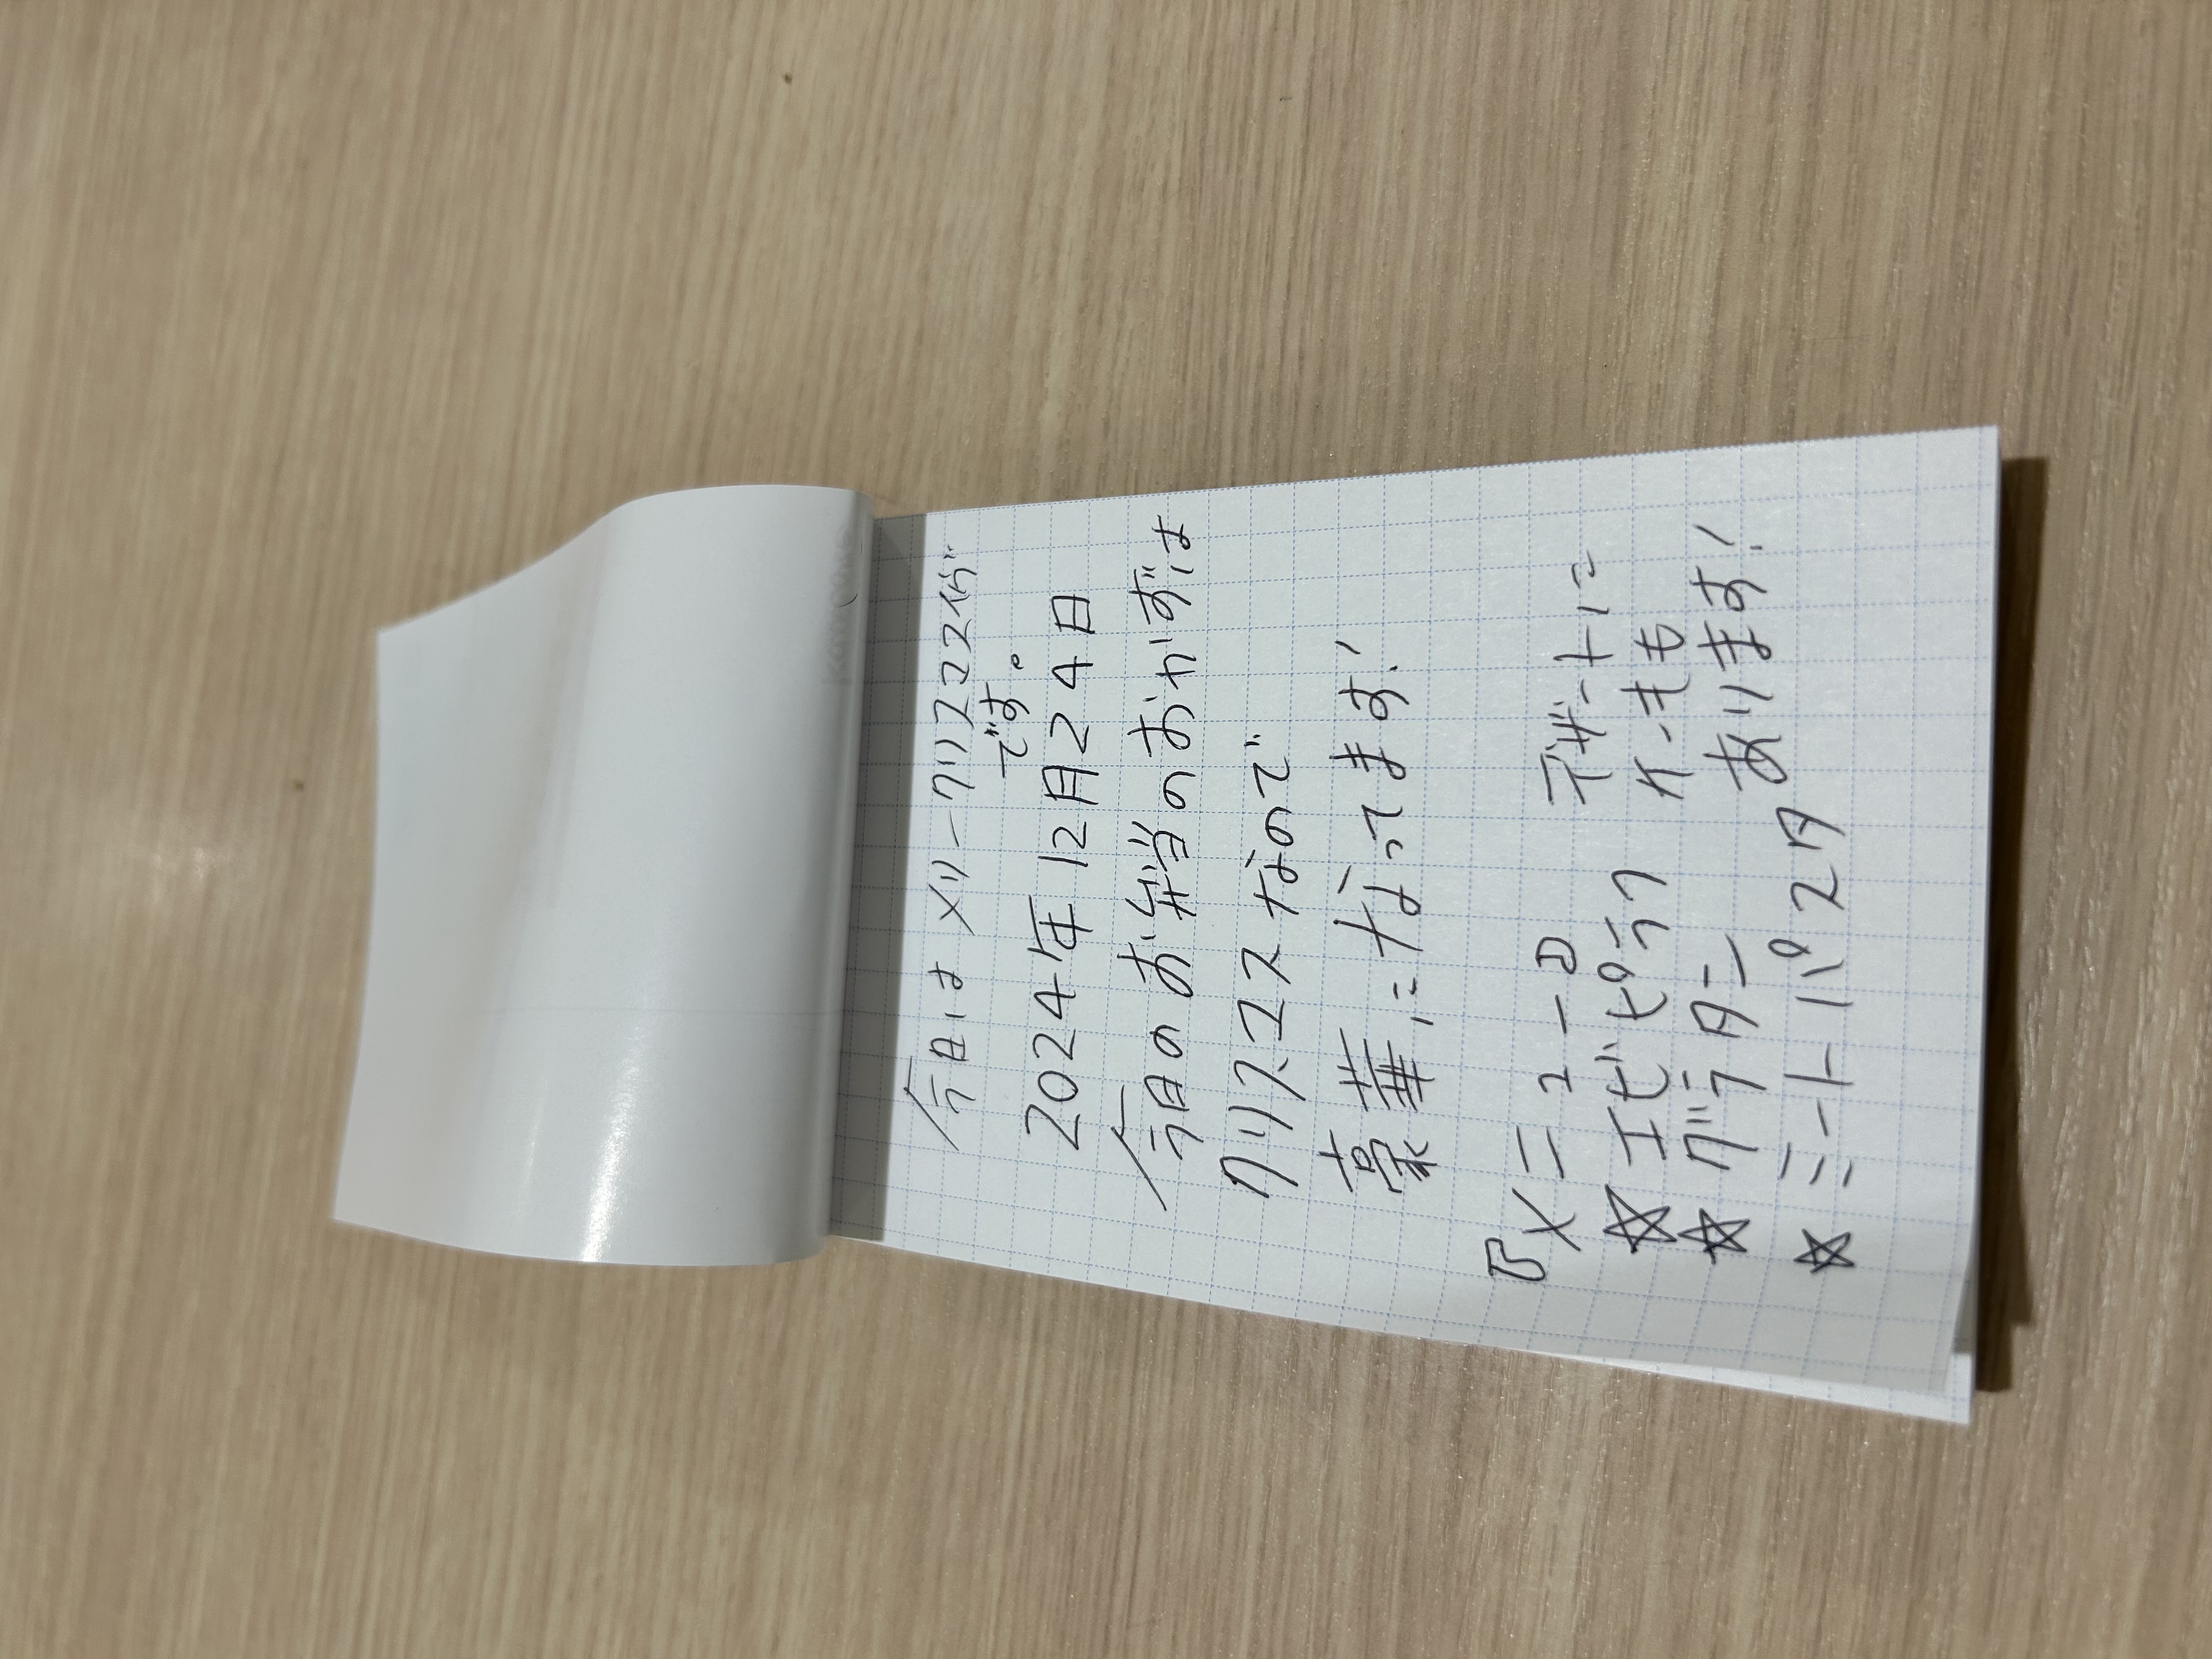 今日は メリークリスマスイヴ
です。
2024年12月24日
今日のお弁当のおかずは
クリスマスなので
豪華になってます!
『メニュー』
☆エビピラフ
☆グラタン
☆ミートパスタ
デザートに
ケーキも
あります!